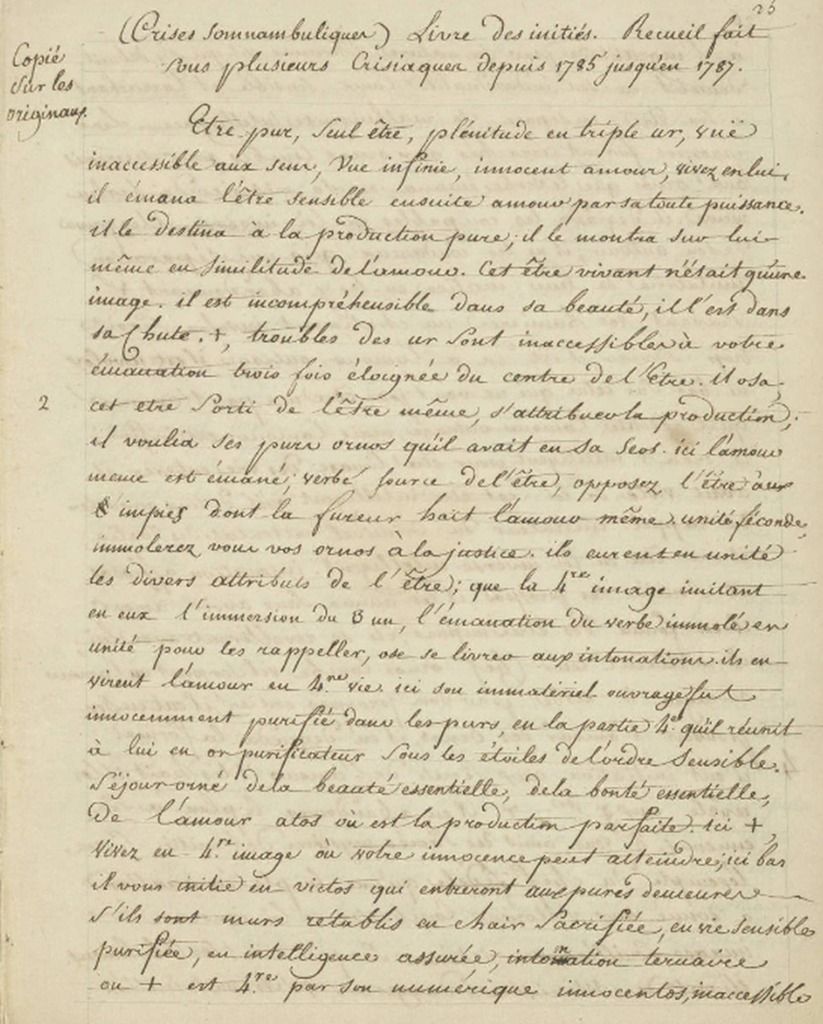 25
(Crises somnambuliques) Livre des initiés. Recueil fait
sous plusieurs Crisiaques depuis 1785 jusqu'en 1787.
Copié
sur les
originaux.
Etre pur, seul être, plénitude en triple ur, vuë
inaccessible aux sens, Vue infinie, innocent amour, vivez en lui,
il émana l'être sensible ensuite amour par sa toute puissance.
il le destina à la production pure; il le montra sur lui-
même en similitude de l'amour. Cet être vivant n'était qu'une
image. il est incompréhensible dans sa beauté, il l'est dans
sa Chute. +, troubles des ur sont inaccessibles à votre
émanation trois fois éloignée du centre de l'Etre. il osa,
2
cet etre sorti de l'être même, s'attribuer la production;
il voulia ses purs ornos qu'il avait en sa Seos. ici l'amour
meme est émané; verbe source de l'être, opposez l'être aux
impies dont la fureur hait l'amour même. unité féconde,
immolerez vous vos ornos à la justice. ils eurent en unité
les divers attributs de l'être; que la 4.re image imitant
en eux l'immersion du 3 un, l'émanation du verbe immolé en
unité pour les rappeller, ose se livrer aux intonations. ils en-
virent l'amour en 4.re vie. ici son immatériel ouvrage fut
innocemment purifié dans les purs, en la partie 4.e qu'il réunit
à lui en or purificateur sous les étoiles de l'ordre sensible.
Séjour orné de la beauté essentielle, de la bonté essentielle,
De l'amour atos où est la production parfaite. ici +,
vivez en 4.re image où votre innocence peut atteindre; ici bas
il vous initie en victos qui entreront aux pures demeures
s'ils sont murs rétablis en chair Sacrifiée, en vie sensible
purifiée, en intelligence assurée, intonation ternaire
ou + est 4.re par son numérique innocentos, inaccessible